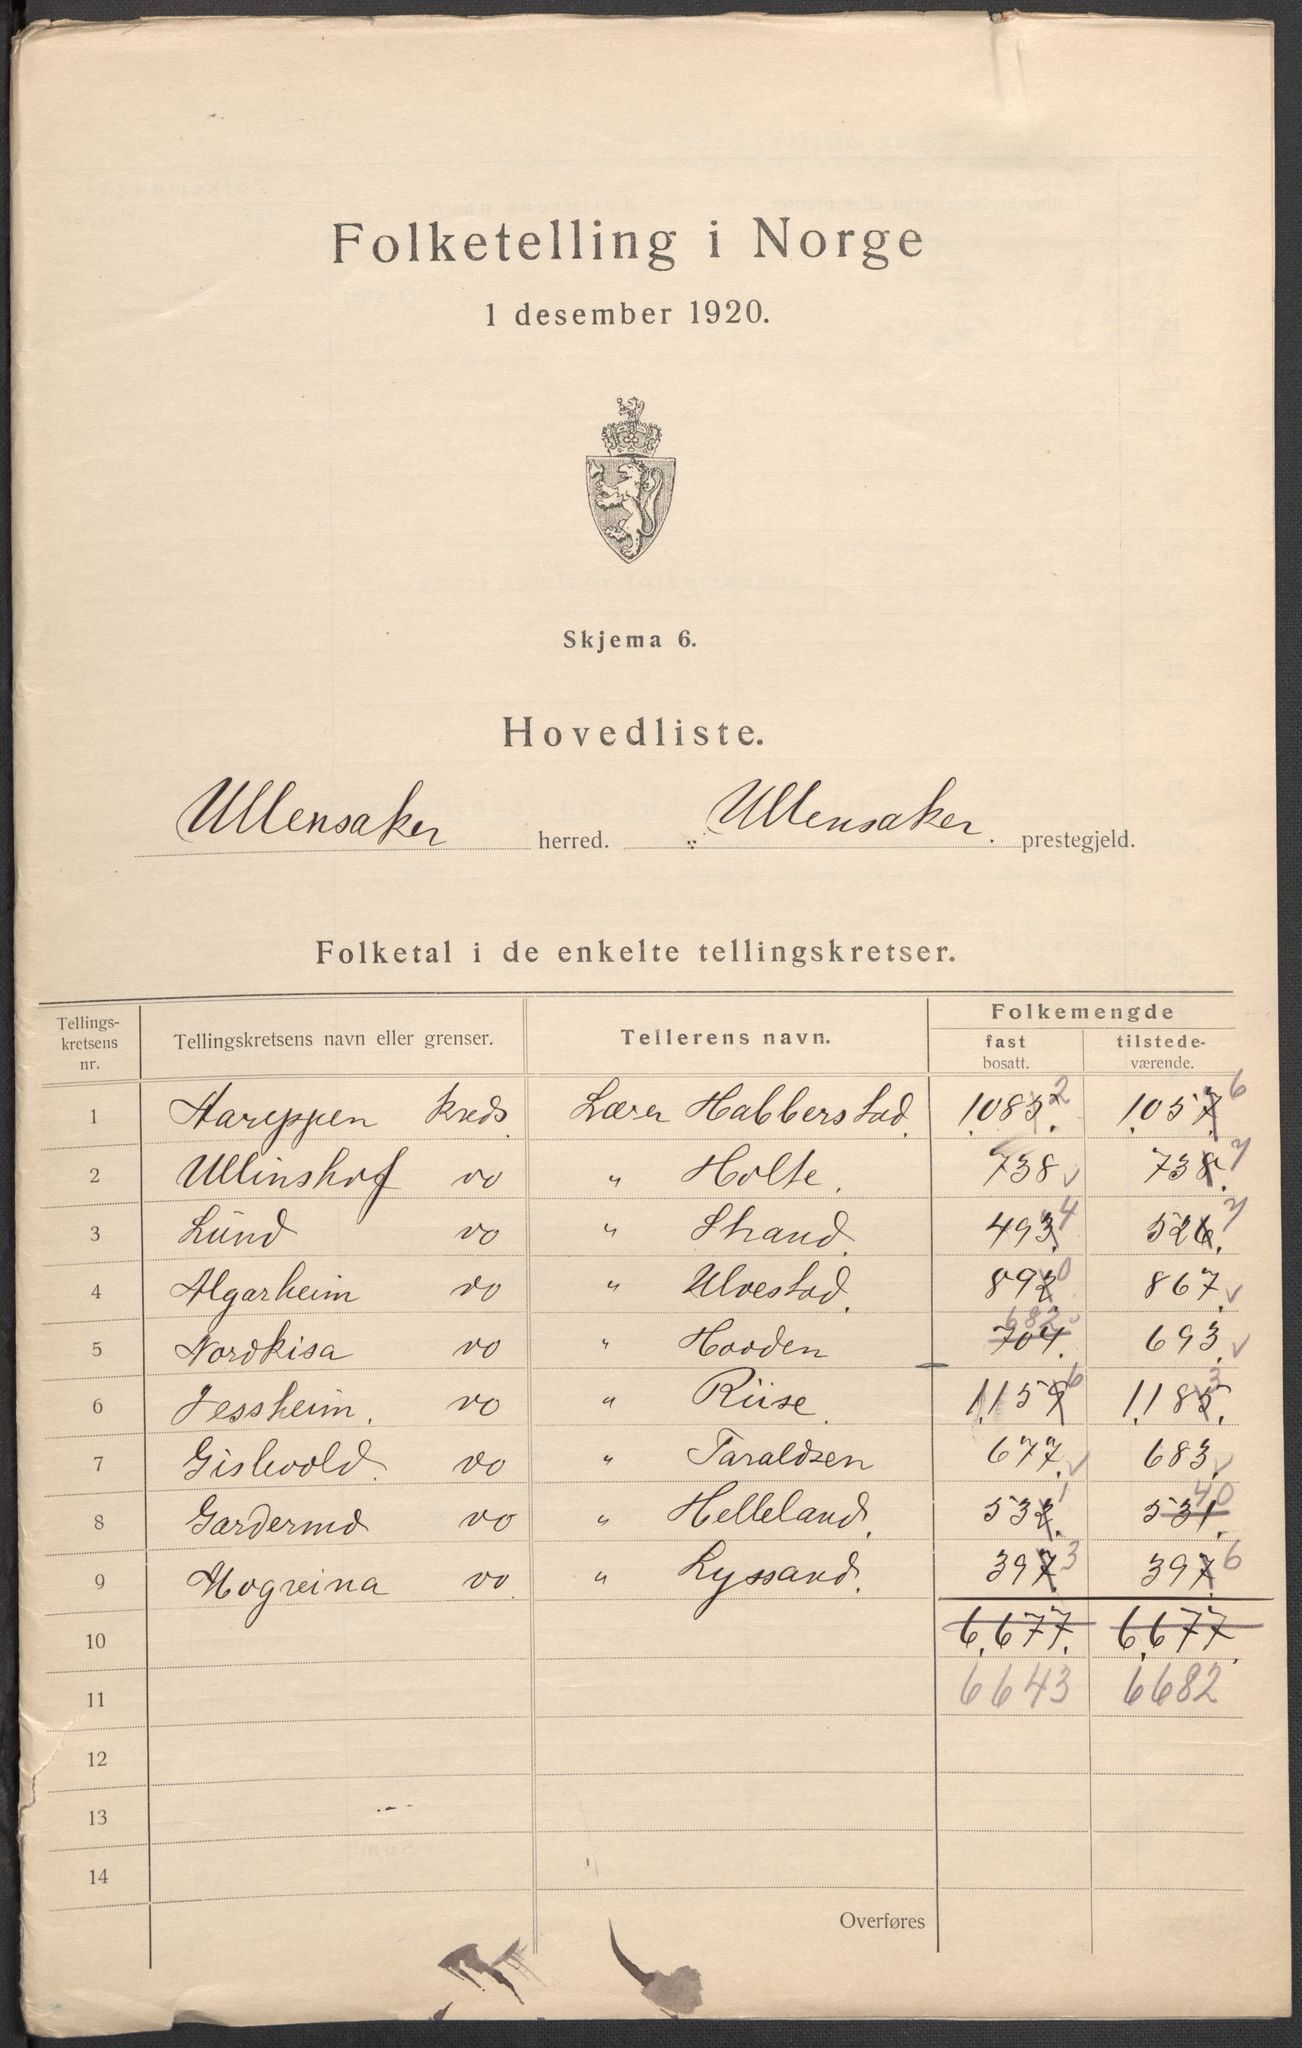 Folketelling i Norge
1 desember 1920.
Skjema 6.
Hovedliste.
Ullensaker herred. Ullensaker. prestegjeld.
Folketal i de enkelte tellingskretser.
Tellings-kretsens nr. Tellingskretsens navn eller grenser. Tellerens navn. Folkemengde fast bosatt. tilstede-værende.
1 Aareppen kreds. Lærer Habberstad. 1083. 2 1057. 6
2 Ullinshof do " Holte. 738 v 738. 7
3 Lund do " Strand. 493. 4 526. 7
4 Algarheim do " Ulvestad. 892 0 867. v
682 v
5 Nordkisa do " Hovden 704. 693. v
6 Jessheim. do " Riise. 1159 6 1185. 3
7 Gislevold. do " Taraldsen 677. v 683. v
8 Gardermo do " Helleland. 532. 1 531. 40
9 Mogreina do " Lyssand. 397 3 397. 6
10 6.677. 6.677.
11 6643 6682
12
13
14
Overføres